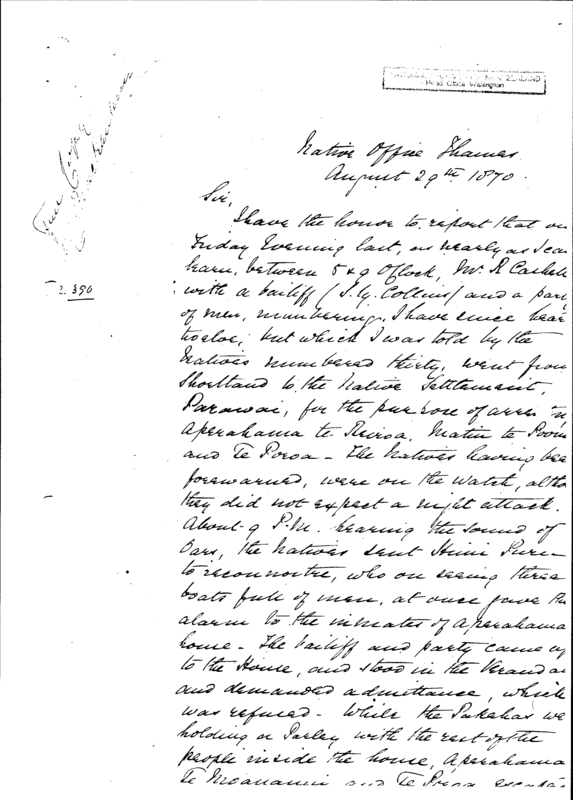 True Copy
NATIONAL ARCHIVES NEW ZEALAND
Head Office Wellington
Native Office Thames
August 29th 1870.
Sir,
I have the honor to report that on
Friday Evening last, as nearly as I can
learn, between 8 & 9 O'Clock, Mr. R
with a bailiff (J. Collins) and a part
of men, numbering, I have since hear
twelve; but which I was told by the
Natives numbered thirty, went from
Shortland to the Native Settlement,
Parawai, for the purpose of arres
Aperahama te Reiroa, Matiu te
and Te Poroa - The Natives having bee
forewarned, were on the watch, altho
they did not expect a night attack.
About 9 P.M. hearing the sound of
Oars, the Natives sent Hiini
to reconnoitre, who on seeing three
boats full of men, at once gave the
alarm to the inmates of Aperahama
house - The bailiff and party came up
to the House, and stood in the Veranda
and demanded admittance, which
was refused - While the Pakehas we
holding a Parley with the rest of the
people inside the house, Aperahama
Te and Te Poroa